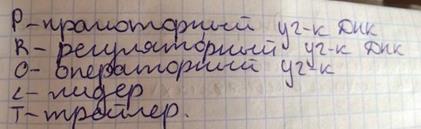 P-прамоторный уг-к ДНК
R-регуляторный уг-к ДНК
О-операторный уг-к
L-лидер
Т-трейлер.